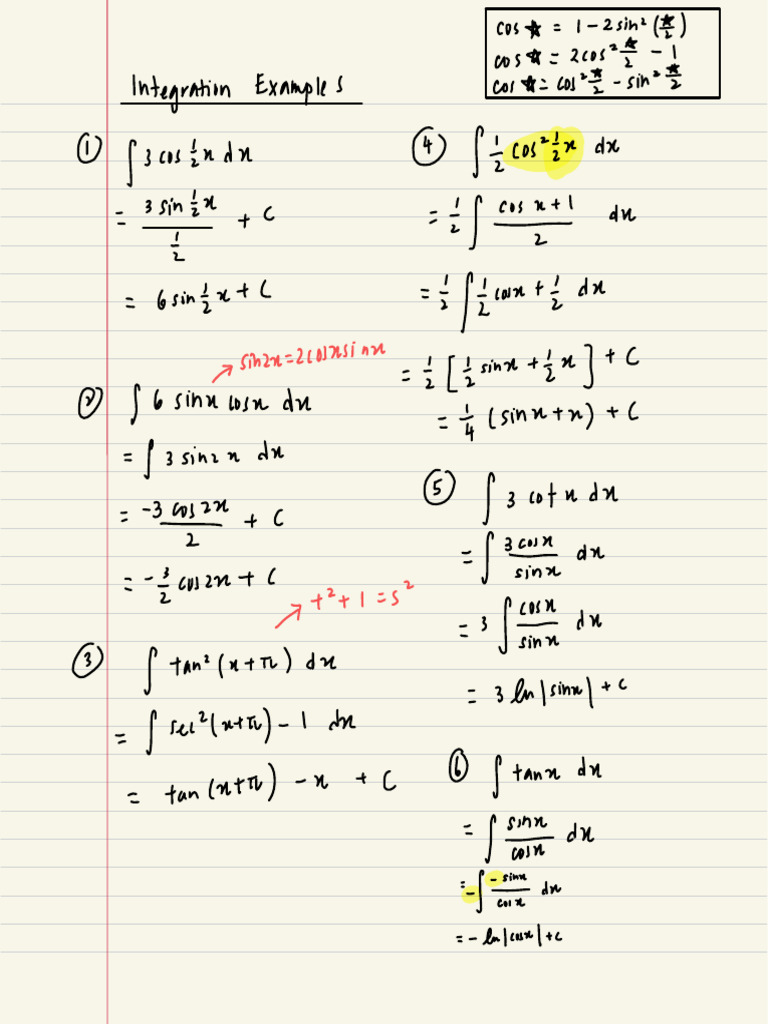 cos ☆ = 1 - 2sin² (☆/2)
cos ☆ = 2cos² ☆/2 - 1
cos ☆ = cos² ☆/2 - sin² ☆/2
Integration Examples
① ∫ 3 cos ½x dx
= (3 sin ½x)/(½) + C
= 6 sin ½x + C
sin2x = 2cosxsinx
② ∫ 6 sinx cosx dx
= ∫ 3 sin2x dx
= (-3 cos2x)/2 + C
= -3/2 cos2x + C
t² + 1 = s²
③ ∫ tan² (x+π) dx
= ∫ sec² (x+π) - 1 dx
= tan (x+π) - x + C
④ ∫ ½ cos² ½x dx
= ½ ∫ (cos x + 1)/2 dx
= ½ ∫ ½ cosx + ½ dx
= ½ [½ sinx + ½ x] + C
= ¼ (sinx + x) + C
⑤ ∫ 3 cot x dx
= ∫ (3 cosx)/(sinx) dx
= 3 ∫ (cosx)/(sinx) dx
= 3 ln |sinx| + C
⑥ ∫ tanx dx
= ∫ (sinx)/(cosx) dx
= - ∫ (-sinx)/(cosx) dx
= - ln |cosx| + C